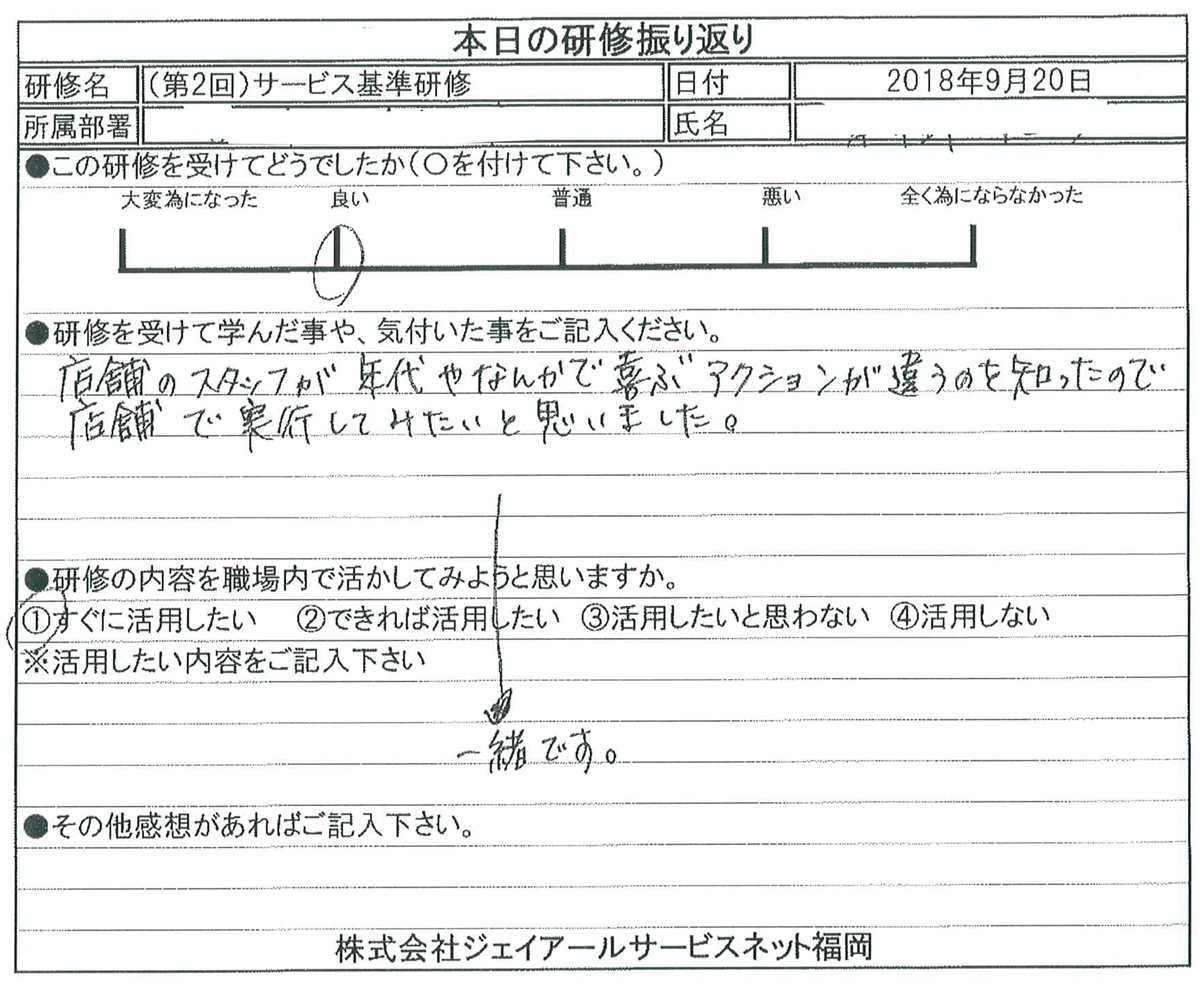 本日の研修振り返り
研修名 (第2回)サービス基準研修 日付 2018年9月20日
所属部署 氏名
●この研修を受けてどうでしたか(○を付けて下さい。)
大変為になった 良い 普通 悪い 全く為にならなかった
●研修を受けて学んだ事や、気付いた事をご記入ください。
店舗のスタッフが年代やなんかで喜ぶアクションが違うのを知ったので
店舗で実行してみたいと思いました。
●研修の内容を職場内で活かしてみようと思いますか。
①すぐに活用したい ②できれば活用したい ③活用したいと思わない ④活用しない
※活用したい内容をご記入下さい
一緒です。
●その他感想があればご記入下さい。
株式会社ジェイアールサービスネット福岡